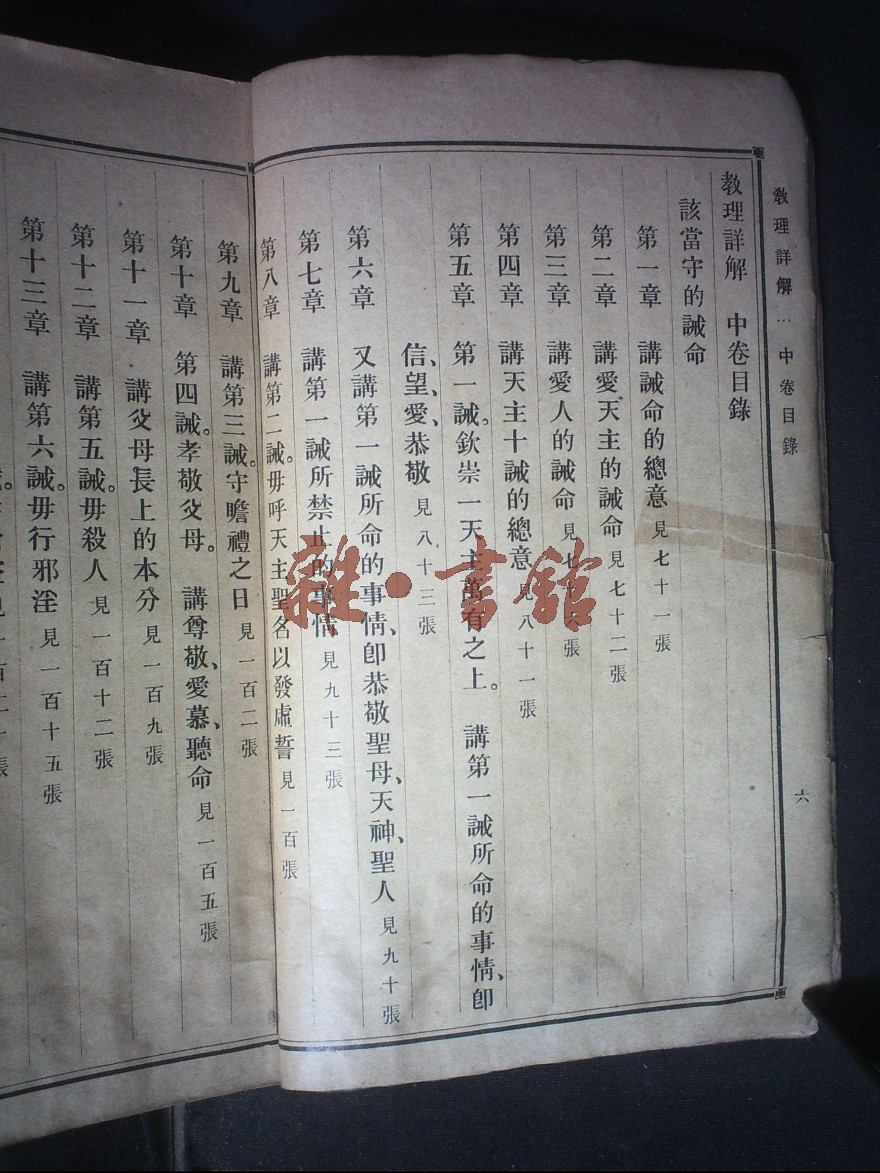 教理詳解…中卷目錄
六
教理詳解 中卷目錄
該當守的誡命
第一章 講誡命的總意 見七十一張
第二章 講愛天主的誡命 見七十二張
第三章 講愛人的誡命 見七十六張
第四章 講天主十誡的總意 見八十一張
第五章 第一誡。欽崇一天主萬有之上。 講第一誡所命的事情、卽
信、望、愛、恭敬 見八十三張
第六章 又講第一誡所命的事情、卽恭敬聖母、天神、聖人 見九十張
第七章 講第一誡所禁止的事情 見九十三張
第八章 講第二誡。毋呼天主聖名以發虛誓 見一百張
第九章 講第三誡。守瞻禮之日 見一百二張
第十章 第四誡。孝敬父母。 講尊敬、愛慕、聽命 見一百五張
第十一章 講父母長上的本分 見一百九張
第十二章 講第五誡。毋殺人 見一百十二張
第十三章 講第六誡。毋行邪淫 見一百十五張
雜·書館